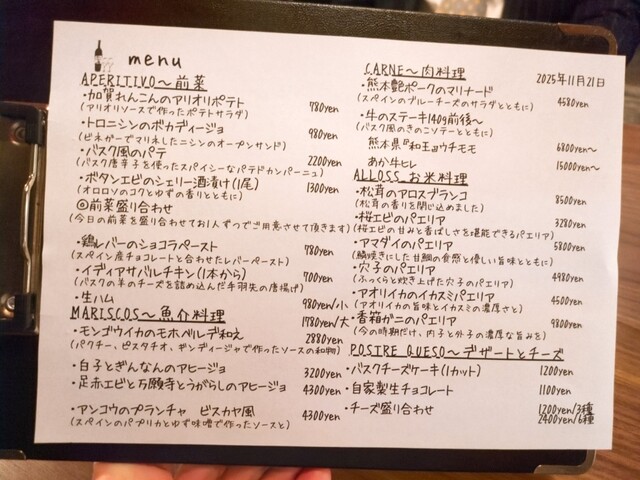 menu
APERITIVO～前菜
・加賀れんこんのアリオリポテト 780yen
(アリオリソースで作ったポテトサラダ)
・トロニシンのボカディージョ 980yen
(ビネガーでマリネしたニシンのオープンサンド)
・バスク風のパテ 2200yen
(バスク唐辛子を使ったスパイシーなパテドカンパーニュ)
・ボタンエビのシェリー酒漬け(1尾) 1300yen
(オロロソのコクとゆずの香りとともに)
◎前菜盛り合わせ
(今日の前菜を盛り合わせてお1人ずつでご用意させて頂きます)
・鶏レバーのショコラペースト 780yen
(スペイン産チョコレートと合わせたレバーペースト)
・イディアサバルチキン(1本から) 700yen
(バスクの羊のチーズを詰め込んだ手羽先の唐揚げ)
・生ハム 980yen/小
1780yen/大
MARISCOS～魚介料理
・モンゴウイカのモホベルデ和え 2880yen
(パクチー、ピスタチオ、ギンディージャで作ったソースの和物)
・白子とぎんなんのアヒージョ 3200yen
・足赤エビと万願寺とうがらしのアヒージョ 4300yen
・アンコウのプランチャ ビスカヤ風 4300yen
(スペインのパプリカとゆず味噌で作ったソースと)
CARNE～肉料理
2025年11月21日
・熊本艶ポークのマリナード 4580yen
(スペインのブルーチーズのサラダとともに)
・牛のステーキ140g前後～
(バスク風のきのこソテーとともに)
熊本県『和王』ウチモモ 6800yen～
あか牛ヒレ 15000yen～
ALLOSS お米料理
・松茸のアロスブランコ 8500yen
(松茸の香りを閉じ込めました)
・桜エビのパエリア 3280yen
(桜エビの甘みと香ばしさを堪能できるパエリア)
・アマダイのパエリア 5800yen
(鱗焼きにした甘鯛の食感と優しい旨味とともに)
・穴子のパエリア 4980yen
(ふっくらと炊き上げた穴子のパエリア)
・アオリイカのイカスミパエリア 4500yen
(アオリイカの旨味とイカスミの濃厚さと)
・香箱ガニのパエリア 9800yen
(今の時期だけ、内子と外子の濃厚な旨みを)
POSTRE QUESO～デザートとチーズ
・バスクチーズケーキ(1カット) 1200yen
・自家製生チョコレート 1100yen
・チーズ盛り合わせ 1200yen/3種
2400yen/6種